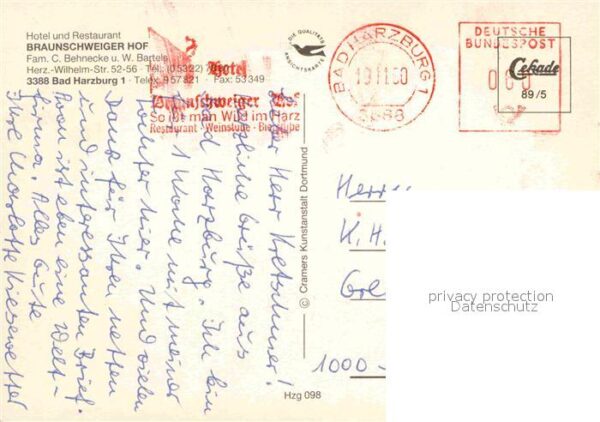 Hotel und Restaurant
BRAUNSCHWEIGER HOF
Fam. C. Behnecke u. W. Bartels
Herz.-Wilhelm-Str. 52-56 · Tel. (05322) 7
3388 Bad Harzburg 1 · Telex 957821 · Fax 53349
Hotel
Braunschweiger Hof
So ißt man Wild im Harz
Restaurant · Weinstube · Bierstube
DIE QUALITÄTS
ANSICHTSKARTE
BAD HARZBURG 1
19.11.90
3388
DEUTSCHE
BUNDESPOST
060
Cekade
89/5
Lieber Herr Kretschmer!
Herzliche Grüße aus
Bad Harzburg. Ich bin
1 Woche mit meiner
Tochter hier. Und vielen
Dank für Ihren netten
und interessanten Brief.
Avon ist eben eine Welt-
firma. Alles Gute
Ihre Charlotte Kiesewetter
© Cramers Kunstanstalt Dortmund
Hzg 098
Herrn
K. H.
1000-
privacy protection
Datenschutz